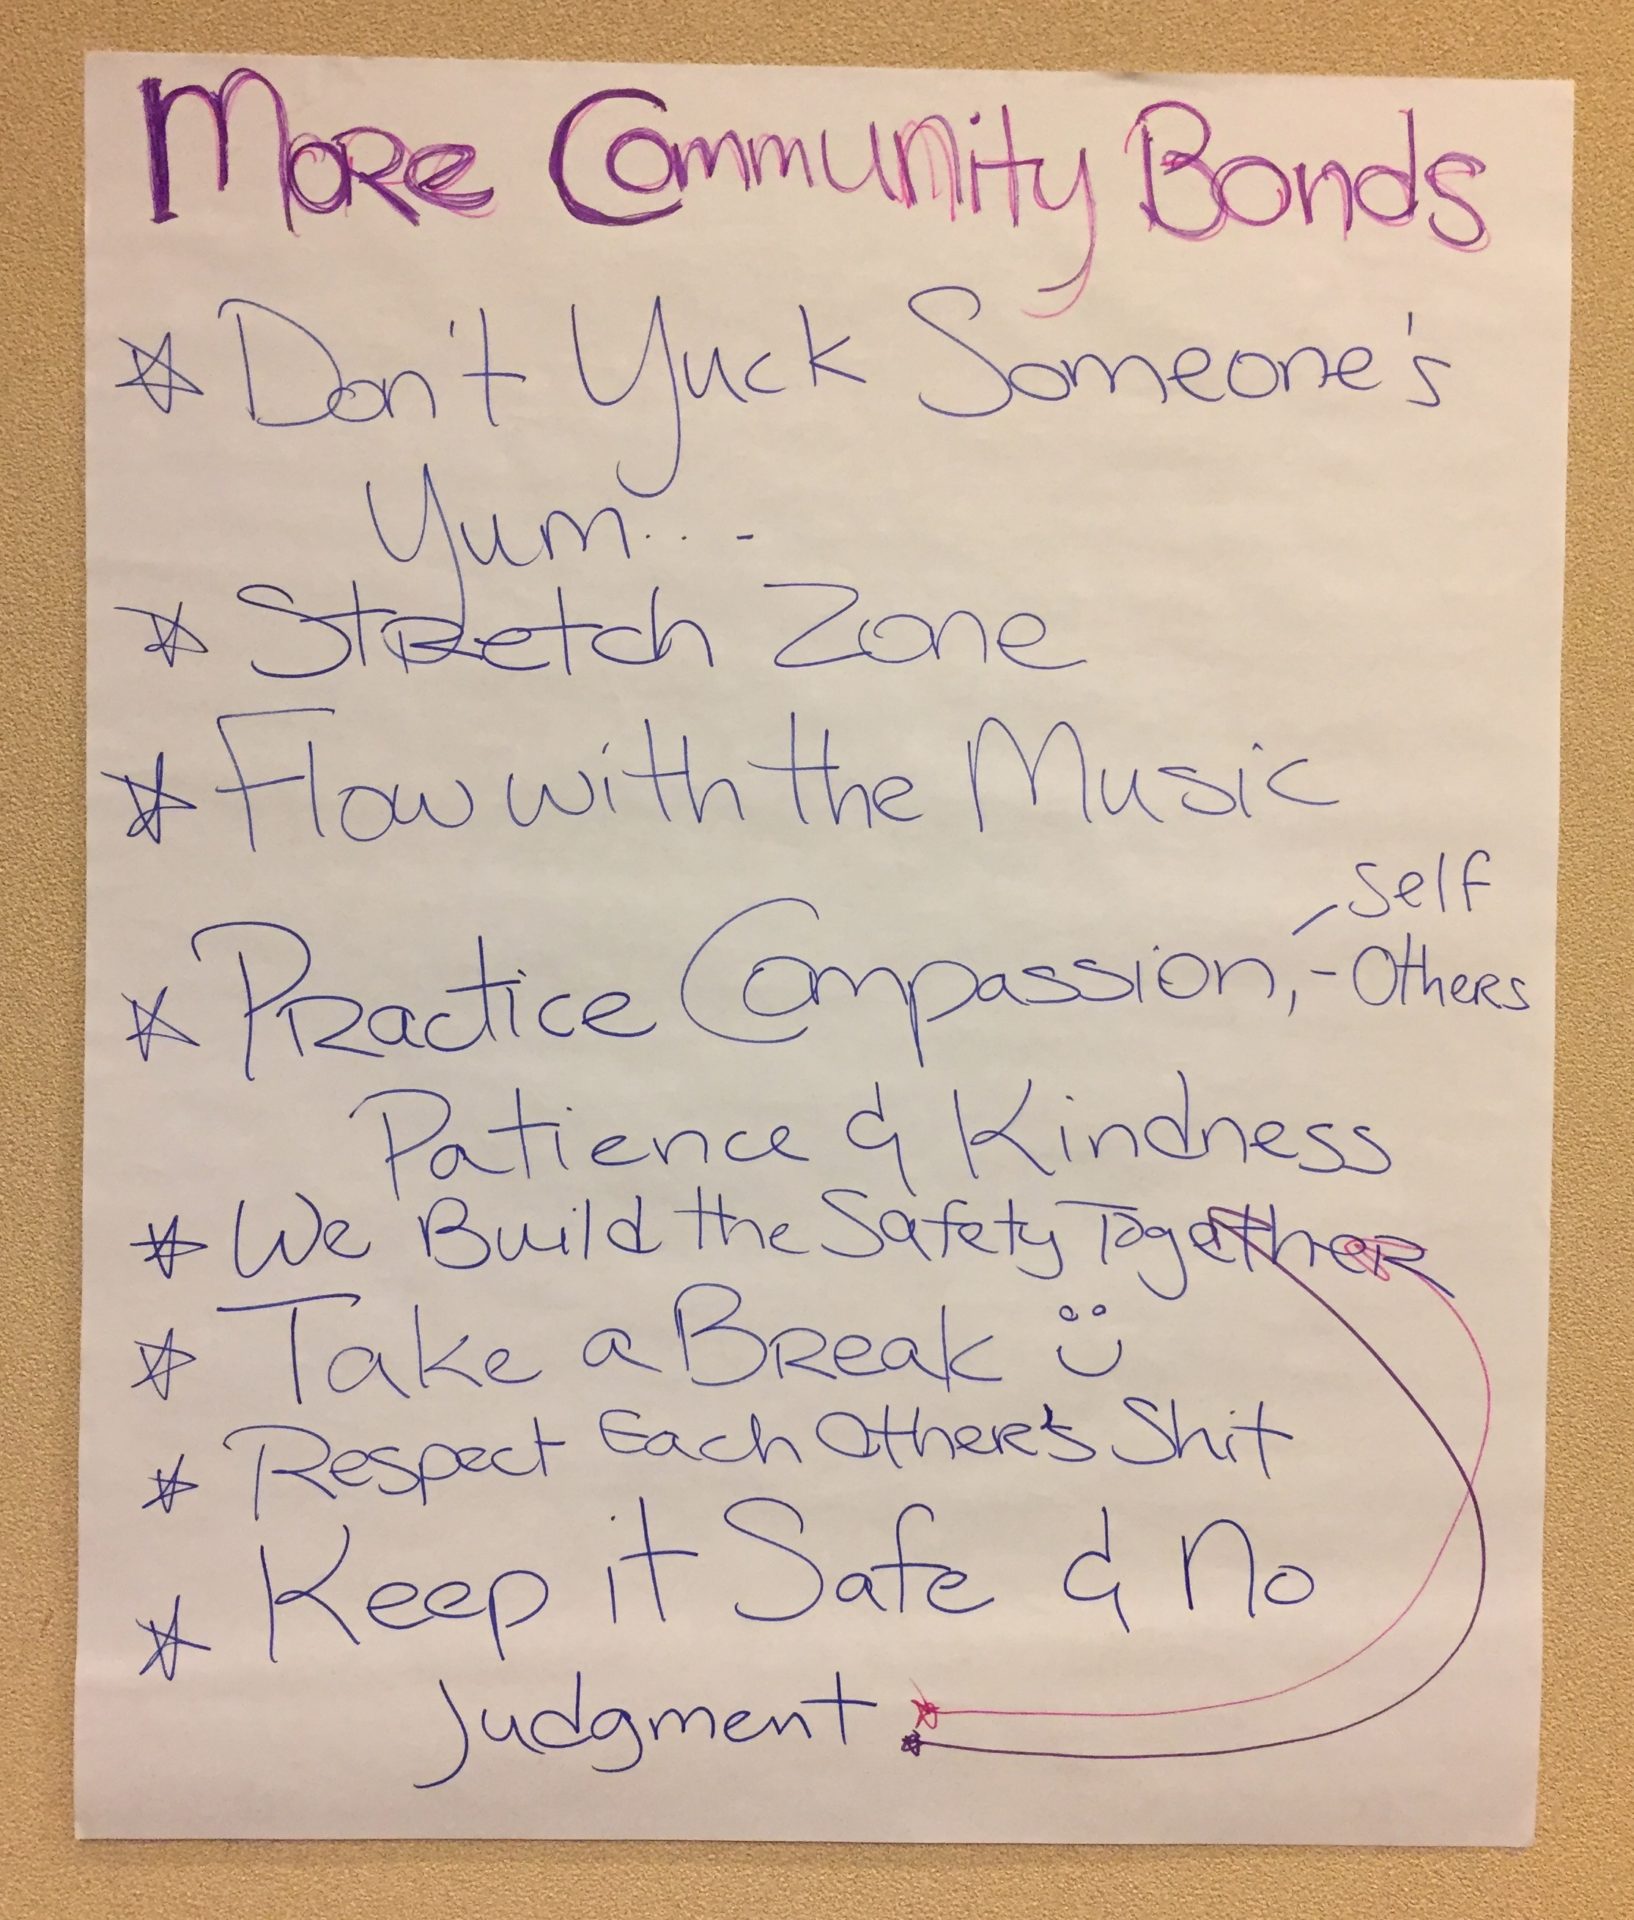 More Community Bonds
Don't Yuck Someone's
Yum...-
Stretch Zone
Flow with the Music
- Self
Practice Compassion, - Others
Patience & Kindness
We Build the Safety Together
Take a Break
Respect Each Other's Shit
Keep it Safe & No
Judgment